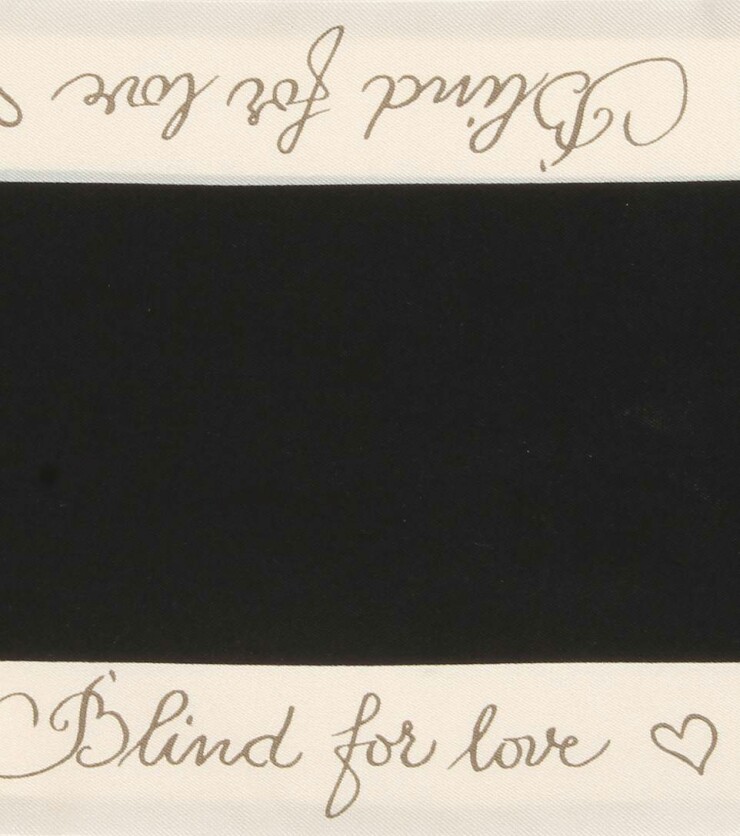 Blind for love
Blind for love